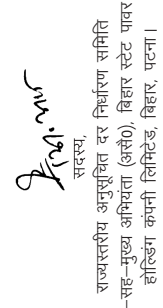 सदस्य,
राज्यस्तरीय अनुसूचित दर निर्धारण समिति
–सह–मुख्य अभियंता (असै0), बिहार स्टेट पावर
होल्डिंग कंपनी लिमिटेड, बिहार, पटना।